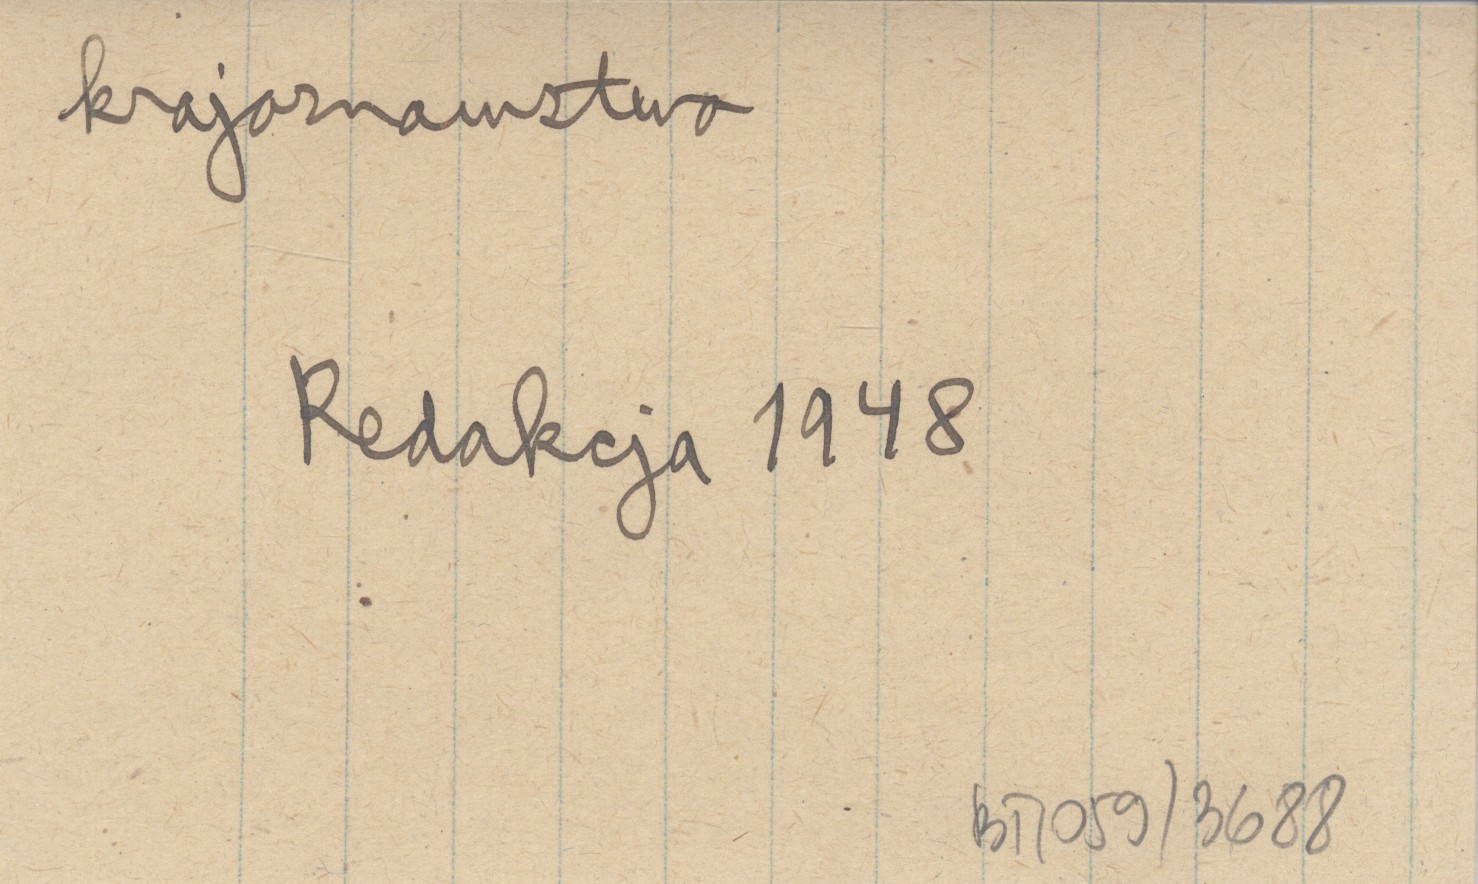 krajoznawstwo
Redakcja 1948
ВП059/3688